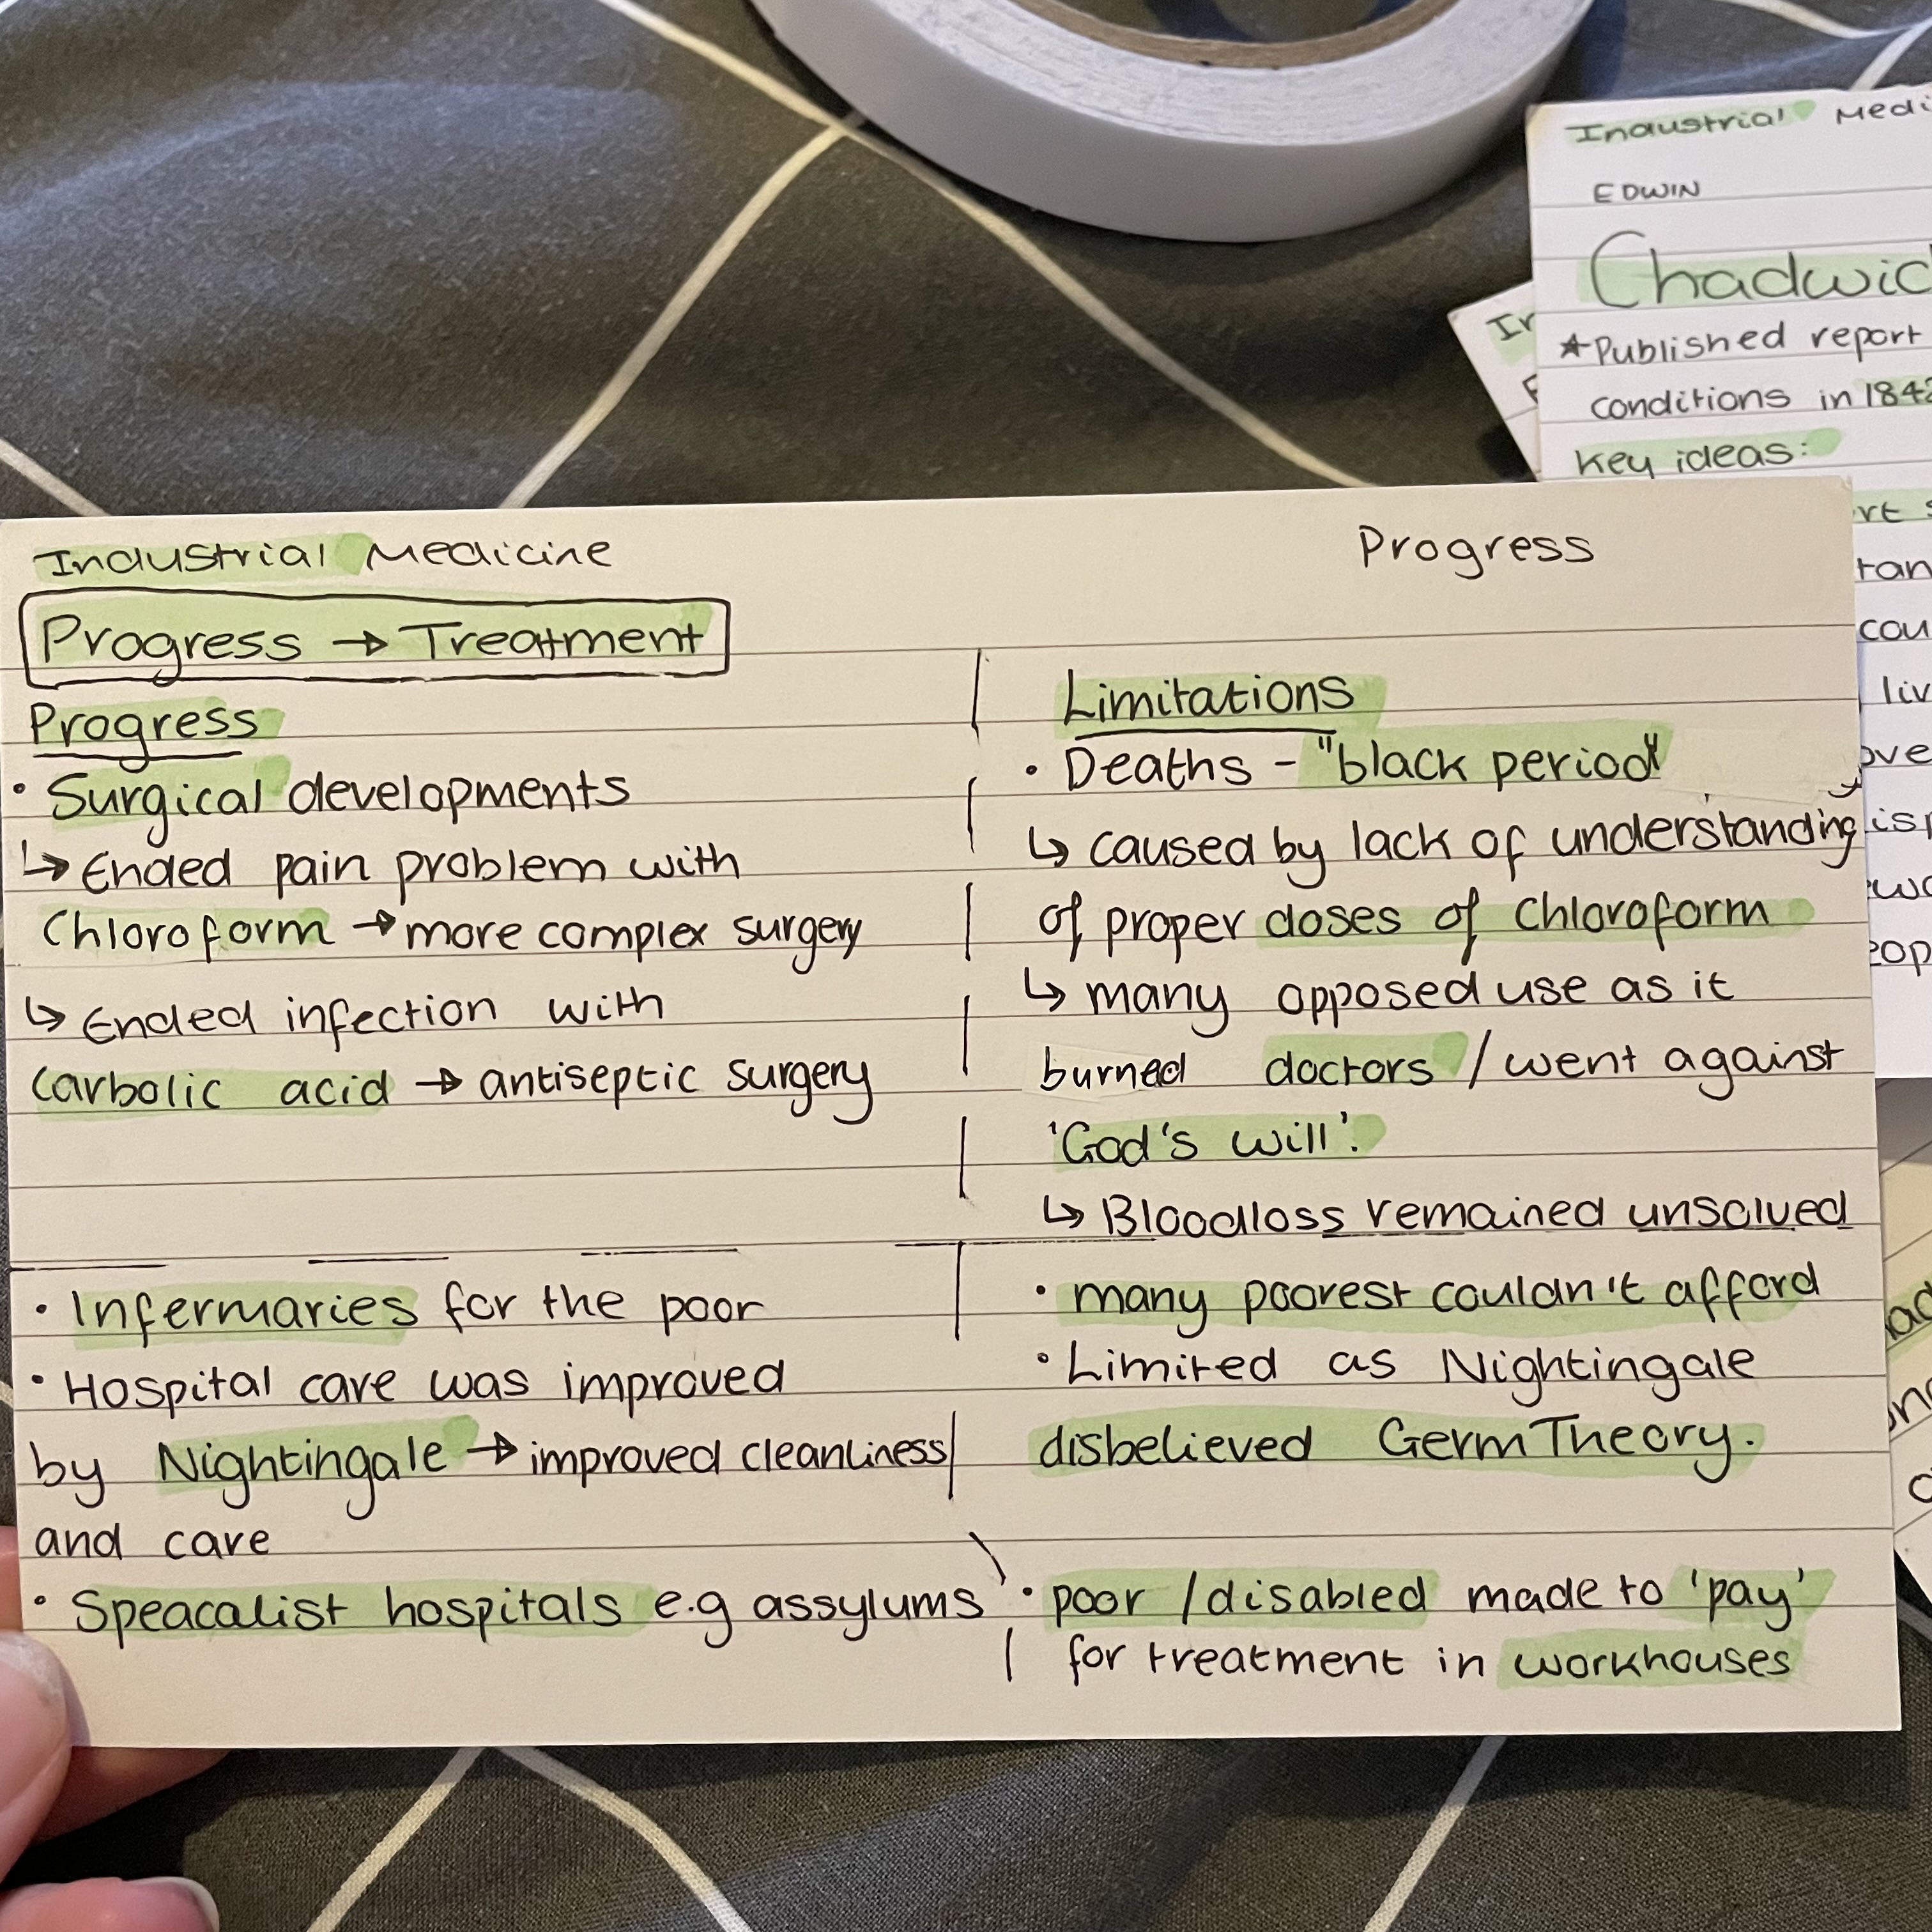 Industrial Medicine
Progress
Progress → Treatment
Progress
• Surgical developments
↳ Ended pain problem with
Chloroform → more complex surgery
↳ Ended infection with
Carbolic acid → antiseptic surgery
• Infermaries for the poor
• Hospital care was improved
by Nightingale → improved cleanliness
and care
• Speacalist hospitals e.g assylums
Limitations
• Deaths - "black period"
↳ caused by lack of understanding
of proper doses of chloroform
↳ many opposed use as it
burned doctors / went against
'God's will'.
↳ Bloodloss remained unsolved
• many poorest couldn't afford
• Limited as Nightingale
disbelieved Germ Theory.
• poor / disabled made to 'pay'
for treatment in workhouses
Industrial Medi
EDWIN
Chadwic
★ Published report
conditions in 1842
Key ideas: